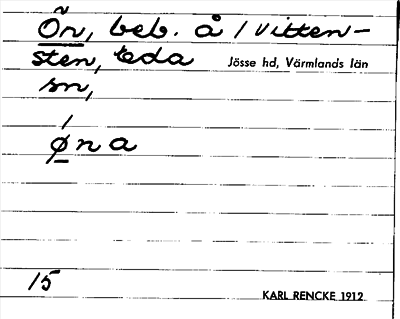 Ön, beb. å / Vitten-
sten, Eda Jösse hd, Värmlands län
sn,
øna
15
KARL RENCKE 1912